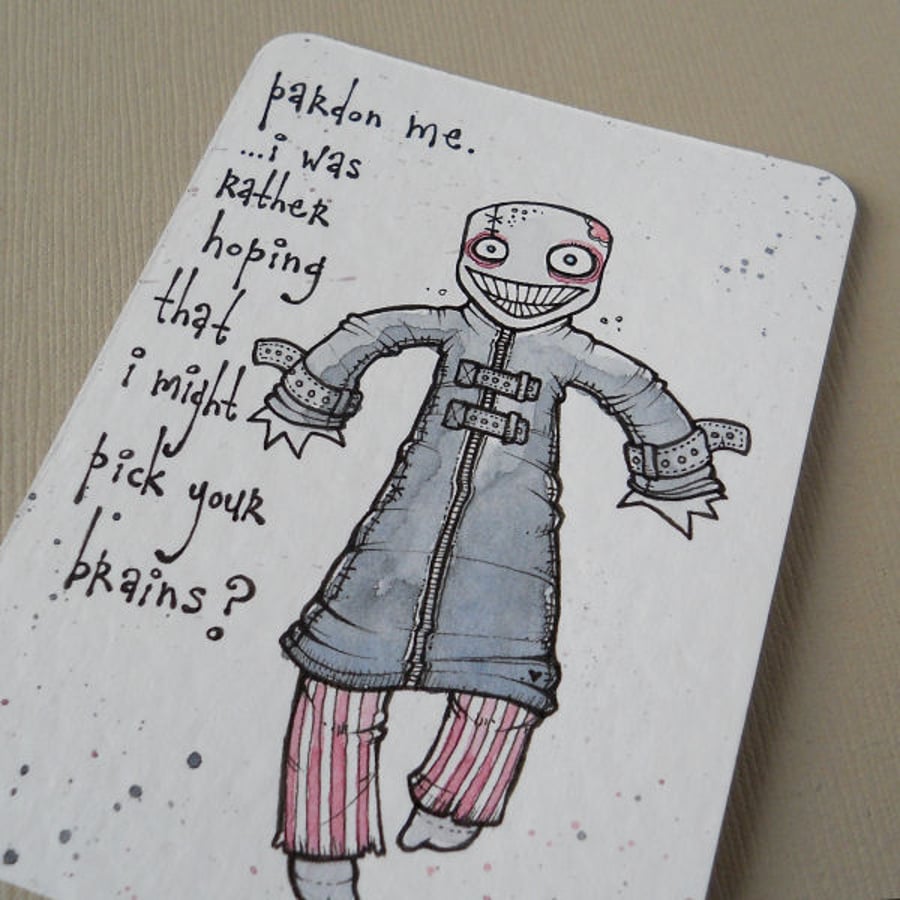 pardon me.
...i was
Rather
hoping
that
i might
pick your
brains?